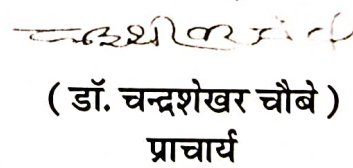 ( डॉ. चन्द्रशेखर चौबे )
प्राचार्य